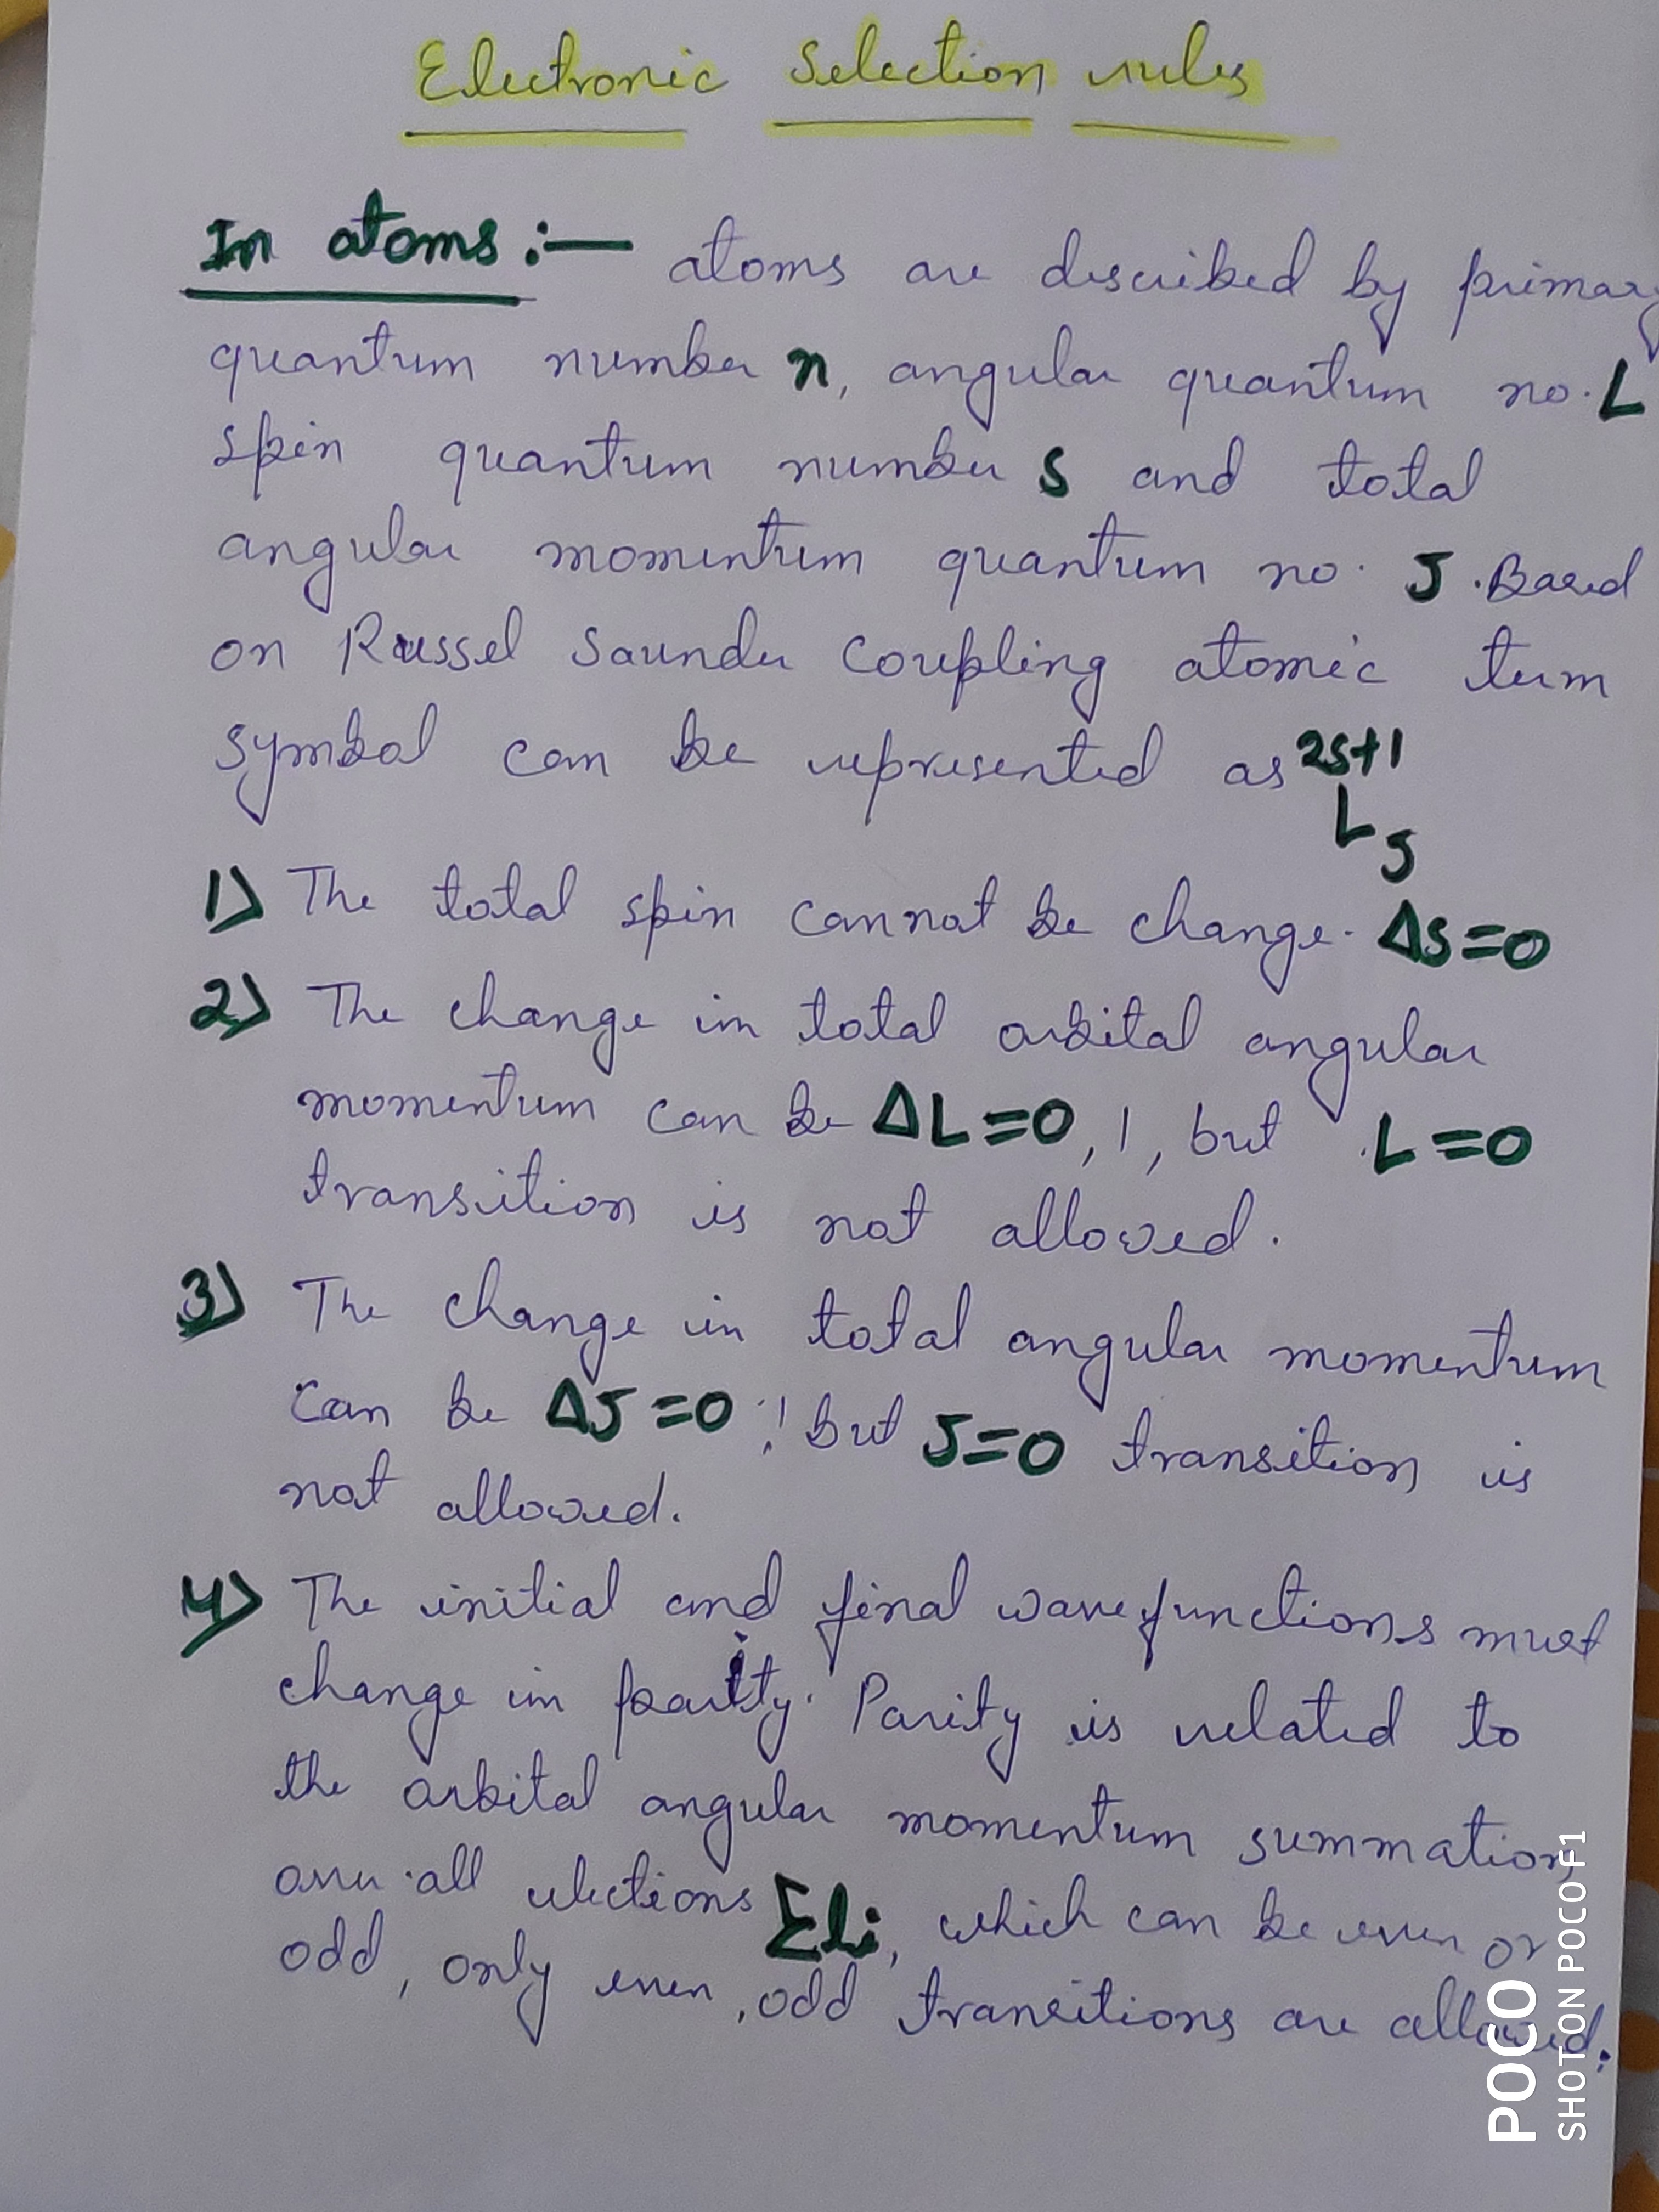 Electronic Selection rules
In atoms :— atoms are described by primary
quantum number n, angular quantum no. L
spin quantum number S and total
angular momentum quantum no. J. Based
on Russel Saunder Coupling atomic term
symbol can be represented as 2S+1
L J
1) The total spin cannot be change. ΔS=0
2) The change in total orbital angular
momentum can be ΔL=0, 1, but L=0
transition is not allowed.
3) The change in total angular momentum
can be ΔJ=0, 1 but J=0 transition is
not allowed.
4) The initial and final wavefunctions must
change in parity. Parity is related to
the orbital angular momentum summation
over all elections Σli, which can be even or
odd, only even, odd transitions are allowed.
POCO
SHOT ON POCO F1